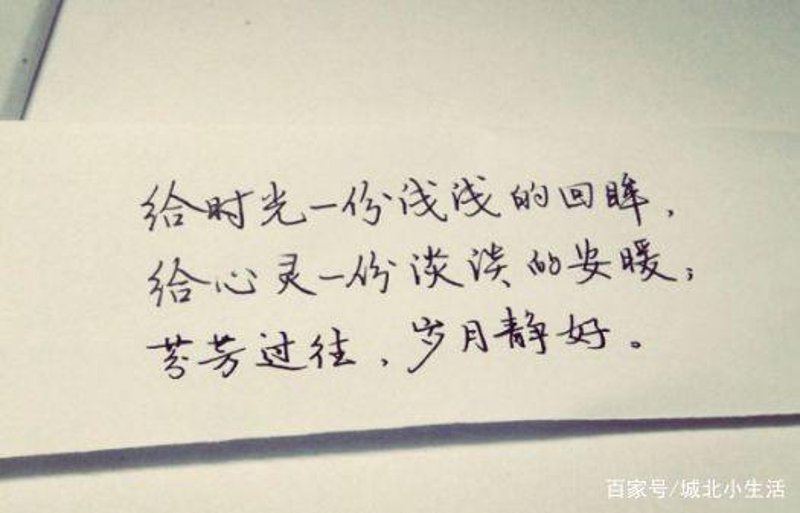 给时光一份浅浅的回眸，
给心灵一份淡淡的安暖；
芬芳过往，岁月静好。
百家号/城北小生活